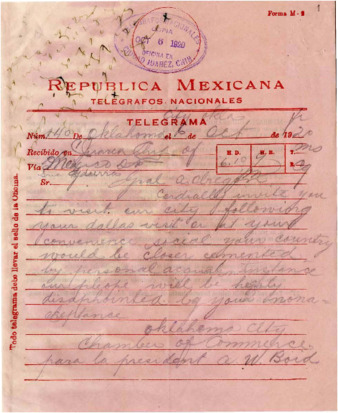 Forma M-2
OCT 6 1920
OFICINA EN
JUAREZ, CHIH.
REPUBLICA MEXICANA
TELEGRAFOS NACIONALES
TELEGRAMA
Núm. 140 De Oklahoma el de Oct de 1920
Recibido en
H. D. H. T.
Vía
Sr. Gral A Obregon
Cordially invite you
to visit our city following
your dallas visit or at your
convenience social your country
would be closer cemented
by personal acquaintance
our people will be keenly
disappointed by your nona-
cceptance
Oklahoma City
Chamber of Commerce
para la president A W Boid
Todo telegrama debe llevar el sello de la Oficina.